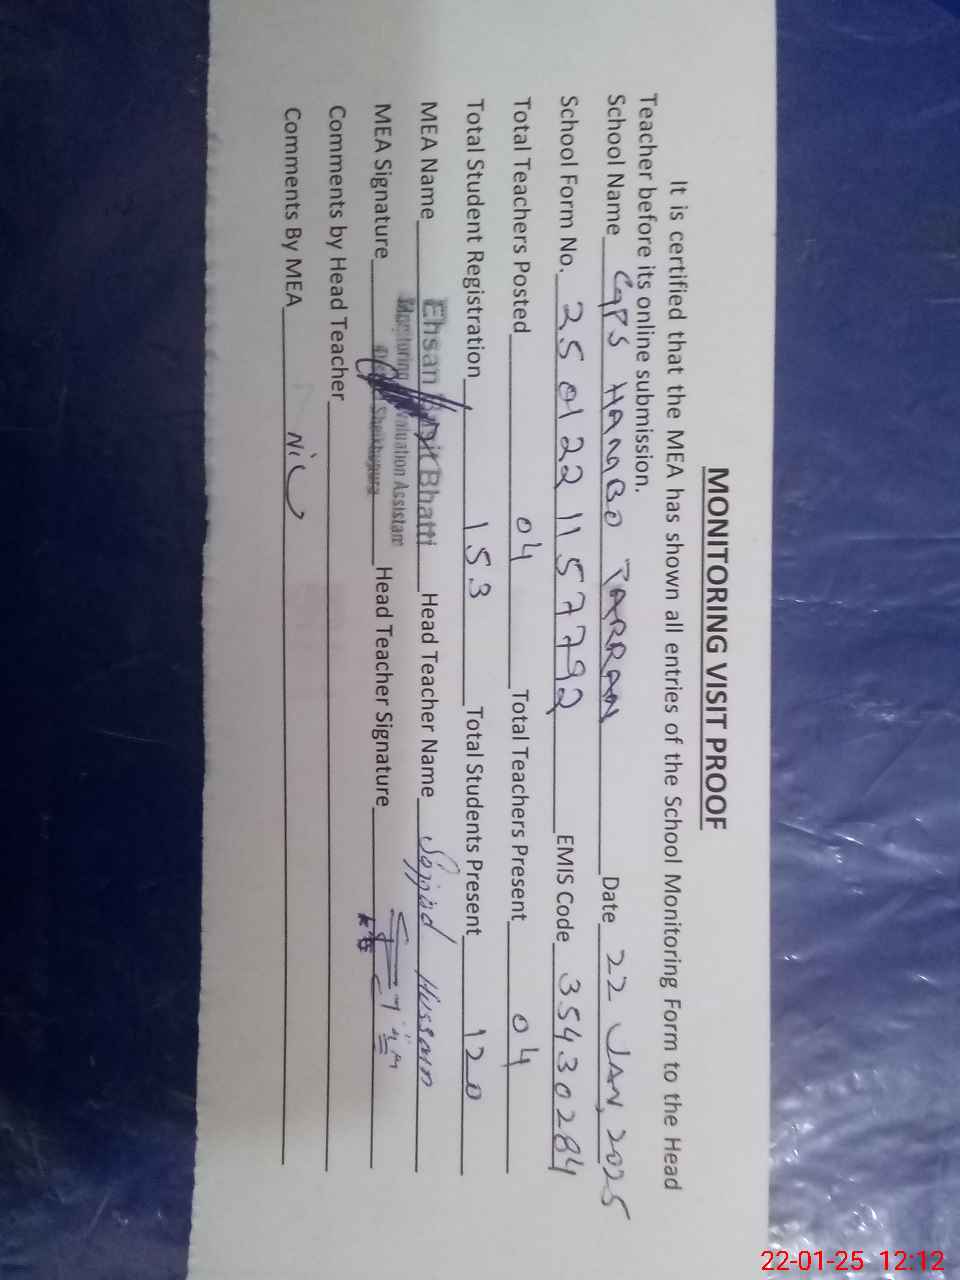 MONITORING VISIT PROOF
It is certified that the MEA has shown all entries of the School Monitoring Form to the Head
Teacher before its online submission.
School Name GPS HAMBO TARRAN Date 22 JAN, 2025
School Form No. 2501221157792 EMIS Code 35430284
Total Teachers Posted 04 Total Teachers Present 04
Total Student Registration 153 Total Students Present 120
MEA Name Ehsan Bhatti Head Teacher Name Sajjad Hussain
Monitoring Evaluation Assistant
MEA Signature Sheikhupura Head Teacher Signature
Comments by Head Teacher
Comments By MEA NiL
22-01-25 12:12